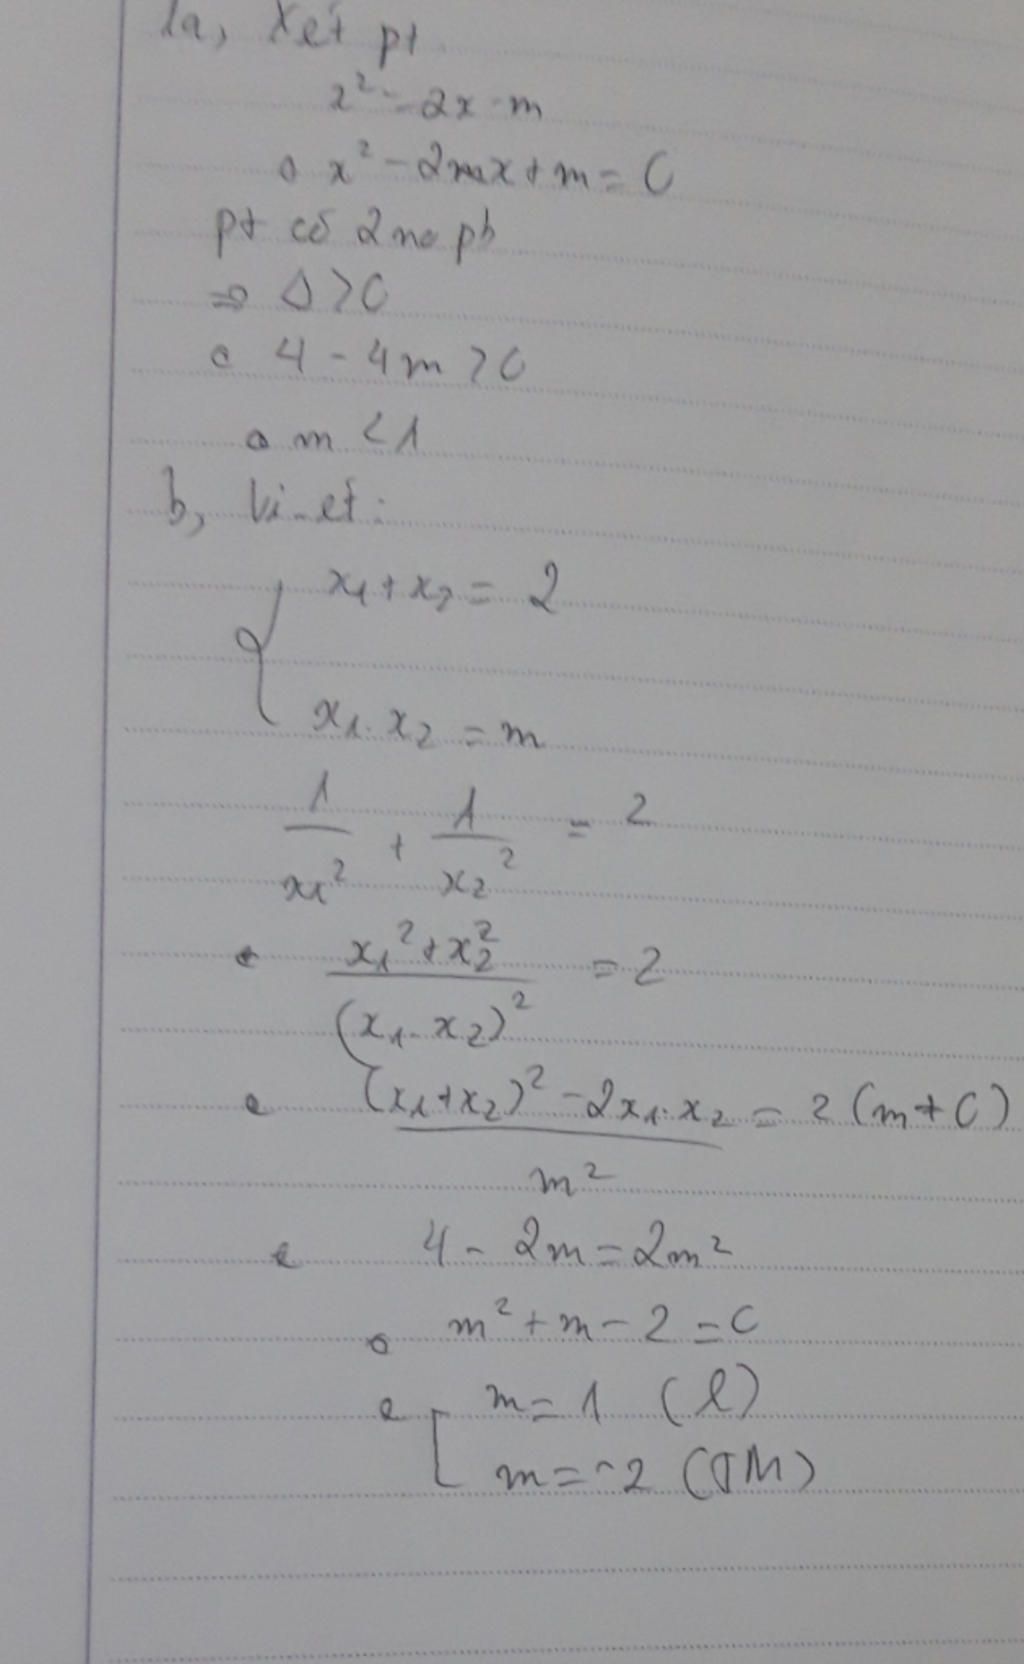 1a, Xét pt
x² = 2x - m
⇔ x² - 2x + m = 0
pt có 2 no pb
⇒ Δ > 0
⇔ 4 - 4m > 0
⇔ m < 1
b, Vi-et:
{ x₁ + x₂ = 2
x₁ . x₂ = m
1/x₁² + 1/x₂² = 2
⇔ (x₁² + x₂²)/(x₁ . x₂)² = 2
⇔ ((x₁ + x₂)² - 2x₁ . x₂)/m² = 2 (m ≠ 0)
⇔ 4 - 2m = 2m²
⇔ m² + m - 2 = 0
⇔ [ m = 1 (l)
m = -2 (TM)